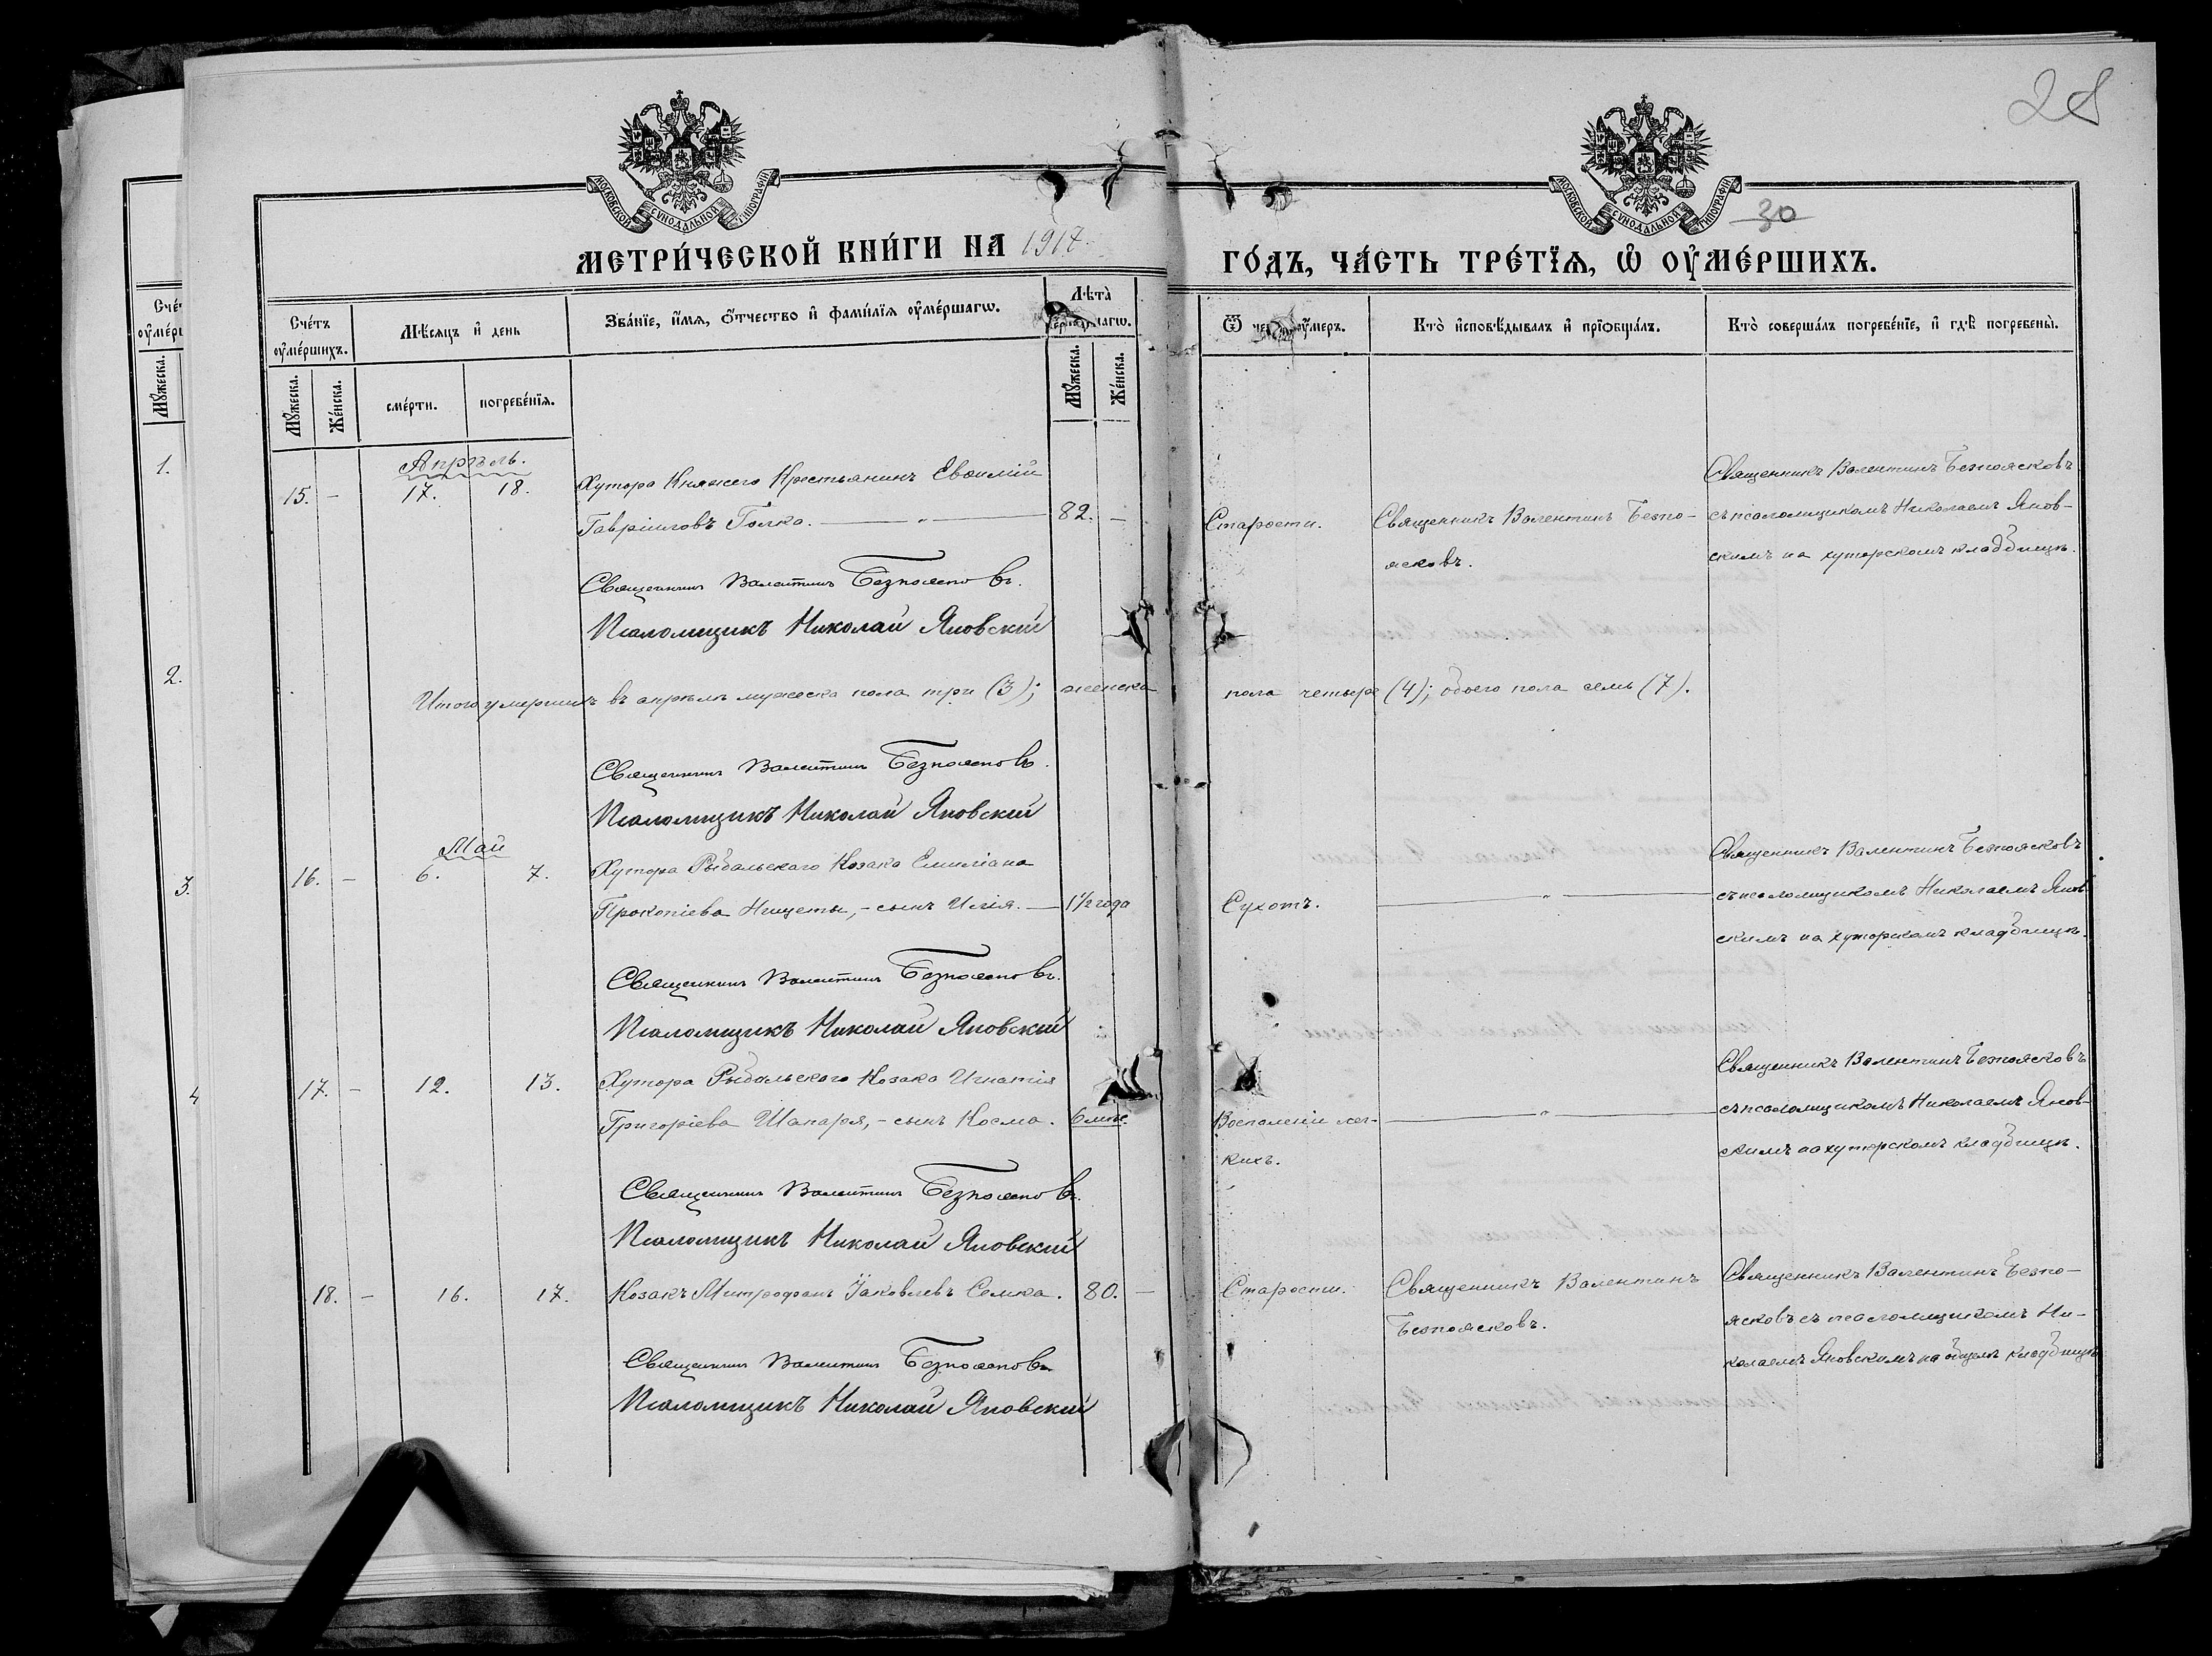 28
МОСКОВСКОЙ СѴНОДАЛЬНОЙ ТИПОГРАФІИ
МОСКОВСКОЙ СѴНОДАЛЬНОЙ ТИПОГРАФІИ
30
МЕТРИ́ЧЕСКОЙ КНИ́ГИ НА 1917 ГО́ДЪ, ЧА́СТЬ ТРЕ́ТЇѦ, Ѽ ОУ҆МЕ́РШИХЪ.
Сче́тъ оу҆ме́ршихъ.
Мѣ́сѧцъ и҆ день
Зва́нїе, и҆́мѧ, ѻ҆́тчество и҆ фами́лїѧ оу҆ме́ршагѡ.
Лѣ́та
Ѿ чегѡ̀ оу҆́меръ.
Кто̀ и҆сповѣ́дывалъ и҆ прїѡбща́лъ.
Кто̀ соверша́лъ погребе́нїе, и҆ гдѣ̀ погребены̀.
Мꙋ́жеска.
Же́нска.
сме́рти.
погребе́нїѧ.
Мꙋ́жеска.
Же́нска.
1.
2.
3.
4
Апрѣль.
15. - 17. 18. Хутора Княжего Крестьянинъ Евѳимій
Гавріиловъ Голка. 82. - Старости. Священникъ Валентинъ Безпо-
ясковъ.
Священникъ Валентинъ Безпоясковъ
съ псаломщикомъ Николаемъ Янов-
скимъ на хуторскомъ кладбищѣ.
Священникъ Валентинъ Безпоясковъ.
Псаломщикъ Николай Яновскій
Итого умершихъ въ апрѣлѣ мужеска пола три (3); женска пола четыре (4); обоего пола семь (7).
Священникъ Валентинъ Безпоясковъ.
Псаломщикъ Николай Яновскій
Май
16. - 6. 7. Хутора Рыбальскаго Козака Емиліана
Прокопіева Нищеты, - сынъ Илія. - 1 1/2 года Сухотъ.
Священникъ Валентинъ Безпоясковъ
съ псаломщикомъ Николаемъ Янов-
скимъ на хуторскомъ кладбищѣ.
Священникъ Валентинъ Безпоясковъ.
Псаломщикъ Николай Яновскій
17. - 12. 13. Хутора Рыбальскаго Козака Игнатія
Григоріева Шапаря, - сынъ Косма. 6 мѣс. Воспаленіи лег-
кихъ.
Священникъ Валентинъ Безпоясковъ
съ псаломщикомъ Николаемъ Янов-
скимъ на хуторскомъ кладбищѣ.
Священникъ Валентинъ Безпоясковъ.
Псаломщикъ Николай Яновскій
18. - 16. 17. Козакъ Митрофанъ Іаковлевъ Семка. 80. - Старости. Священникъ Валентинъ
Безпоясковъ.
Священникъ Валентинъ Безпо-
ясковъ съ псаломщикомъ Ни-
колаемъ Яновскимъ на общемъ кладбищѣ
Священникъ Валентинъ Безпоясковъ
Псаломщикъ Николай Яновскій